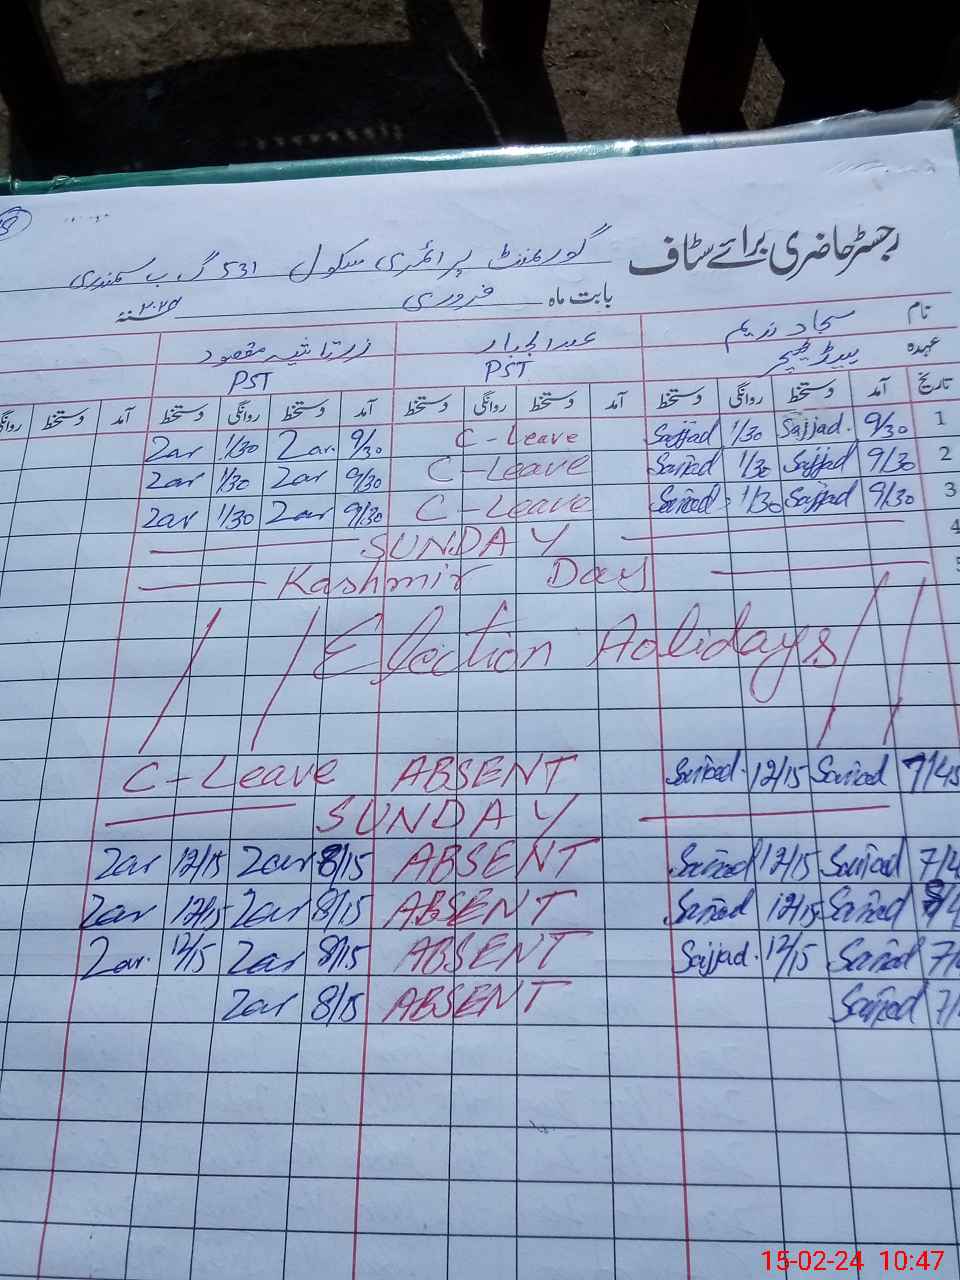 رجسٹر حاضری برائے سٹاف گورنمنٹ پرائمری سکول 531 گ ب سمندری
بابت ماہ فروری
نام سجاد ندیم عبدالجبار
عہدہ ہیڈ ٹیچر PST PST
تاریخ آمد دستخط روانگی دستخط آمد دستخط روانگی دستخط آمد دستخط روانگی دستخط آمد دستخط روانگی
1 9/30 Sajjad. 1/30 Sajjad C-Leave 9/30 Zar. 1/30 Zar
2 9/30 Sajjad 1/30 Sajjad C-Leave 9/30 Zar 1/30 Zar
3 9/30 Sajjad 1/30 Sajjad C-Leave 9/30 Zar 1/30 Zar
4 SUNDAY
5 Kashmir Day
Election Holidays
7/45 Sajjad 12/15 Sajjad. ABSENT C-Leave
SUNDAY
Sajjad 12/15 Sajjad ABSENT 8/15 Zar 12/15 Zar
Sajjad 12/15 Sajjad ABSENT 8/15 Zar 12/15 Zar
Sajjad 12/15 Sajjad. ABSENT 8/15 Zar 12/15 Zar.
Sajjad ABSENT 8/15 Zar
15-02-24 10:47